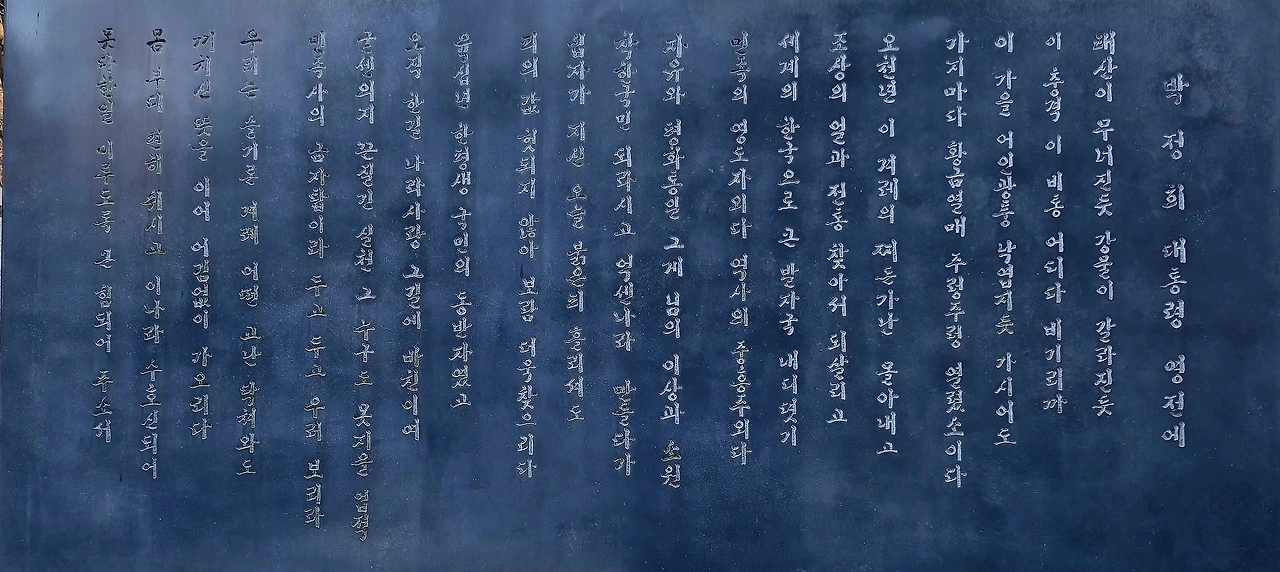 박정희 대통령 영전에
태산이 무너진듯 강물이 갈라진듯
이 충격 이 비통 어디다 비기리까
이 가을 어인광풍 낙엽지듯 가시어도
가지마다 황금열매 주렁주렁 열렸소이다
오천년 이 겨레의 찌든가난 몰아내고
조상의 얼과 전통 찾아서 되살리고
세계의 한국으로 큰 발자국 내디뎠기
민족의 영도자외다 역사의 중흥주외다
자유와 평화통일 그게 님의 이상과 소원
착한국민 되라시고 억센나라 만들다가
십자가 지신 오늘 붉은피 흘리셔도
피의 값 헛되지 않아 보람 더욱찾으리다
육십년 한평생 국민의 동반자였고
오직 한길 나라사랑 그길에 바친이여
굳센의지 끈질긴 실천 그 누구도 못지을 업적
민족사의 금자탑이라 두고 두고 우러 보리라
우리는 슬기론 겨레 어떤 고난 닥쳐와도
끼치신 뜻을 이어 어김없이 가오리다
몸 부디 편히 쉬시고 이나라 수호신되어
못다한일 이루도록 큰 힘되어 주소서